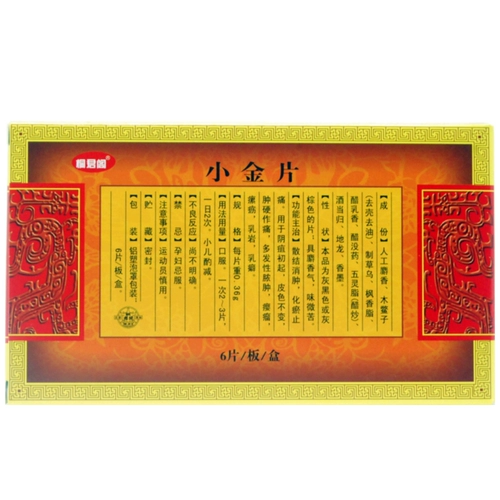 小金片
【成　份】人工麝香、木鳖子
(去壳去油)、制草乌、枫香脂、
醋乳香、醋没药、五灵脂(醋炒)、
酒当归、地龙、香墨。
【性　状】本品为灰黑色或灰
棕色的片；具麝香气，味微苦
【功能主治】散结消肿，化瘀止
痛。用于阴疽初起，皮色不变，
肿硬作痛，多发性脓肿，瘿瘤，
瘰疬，乳岩，乳癖。
【规　格】每片重0.36g
【用法用量】口服。一次2～3片，
一日2次，小儿酌减。
【不良反应】尚不明确。
【禁　忌】孕妇忌服。
【注意事项】运动员慎用。
【贮　藏】密封。
【包　装】铝塑泡罩包装。
6片/板/盒
6片/板/盒